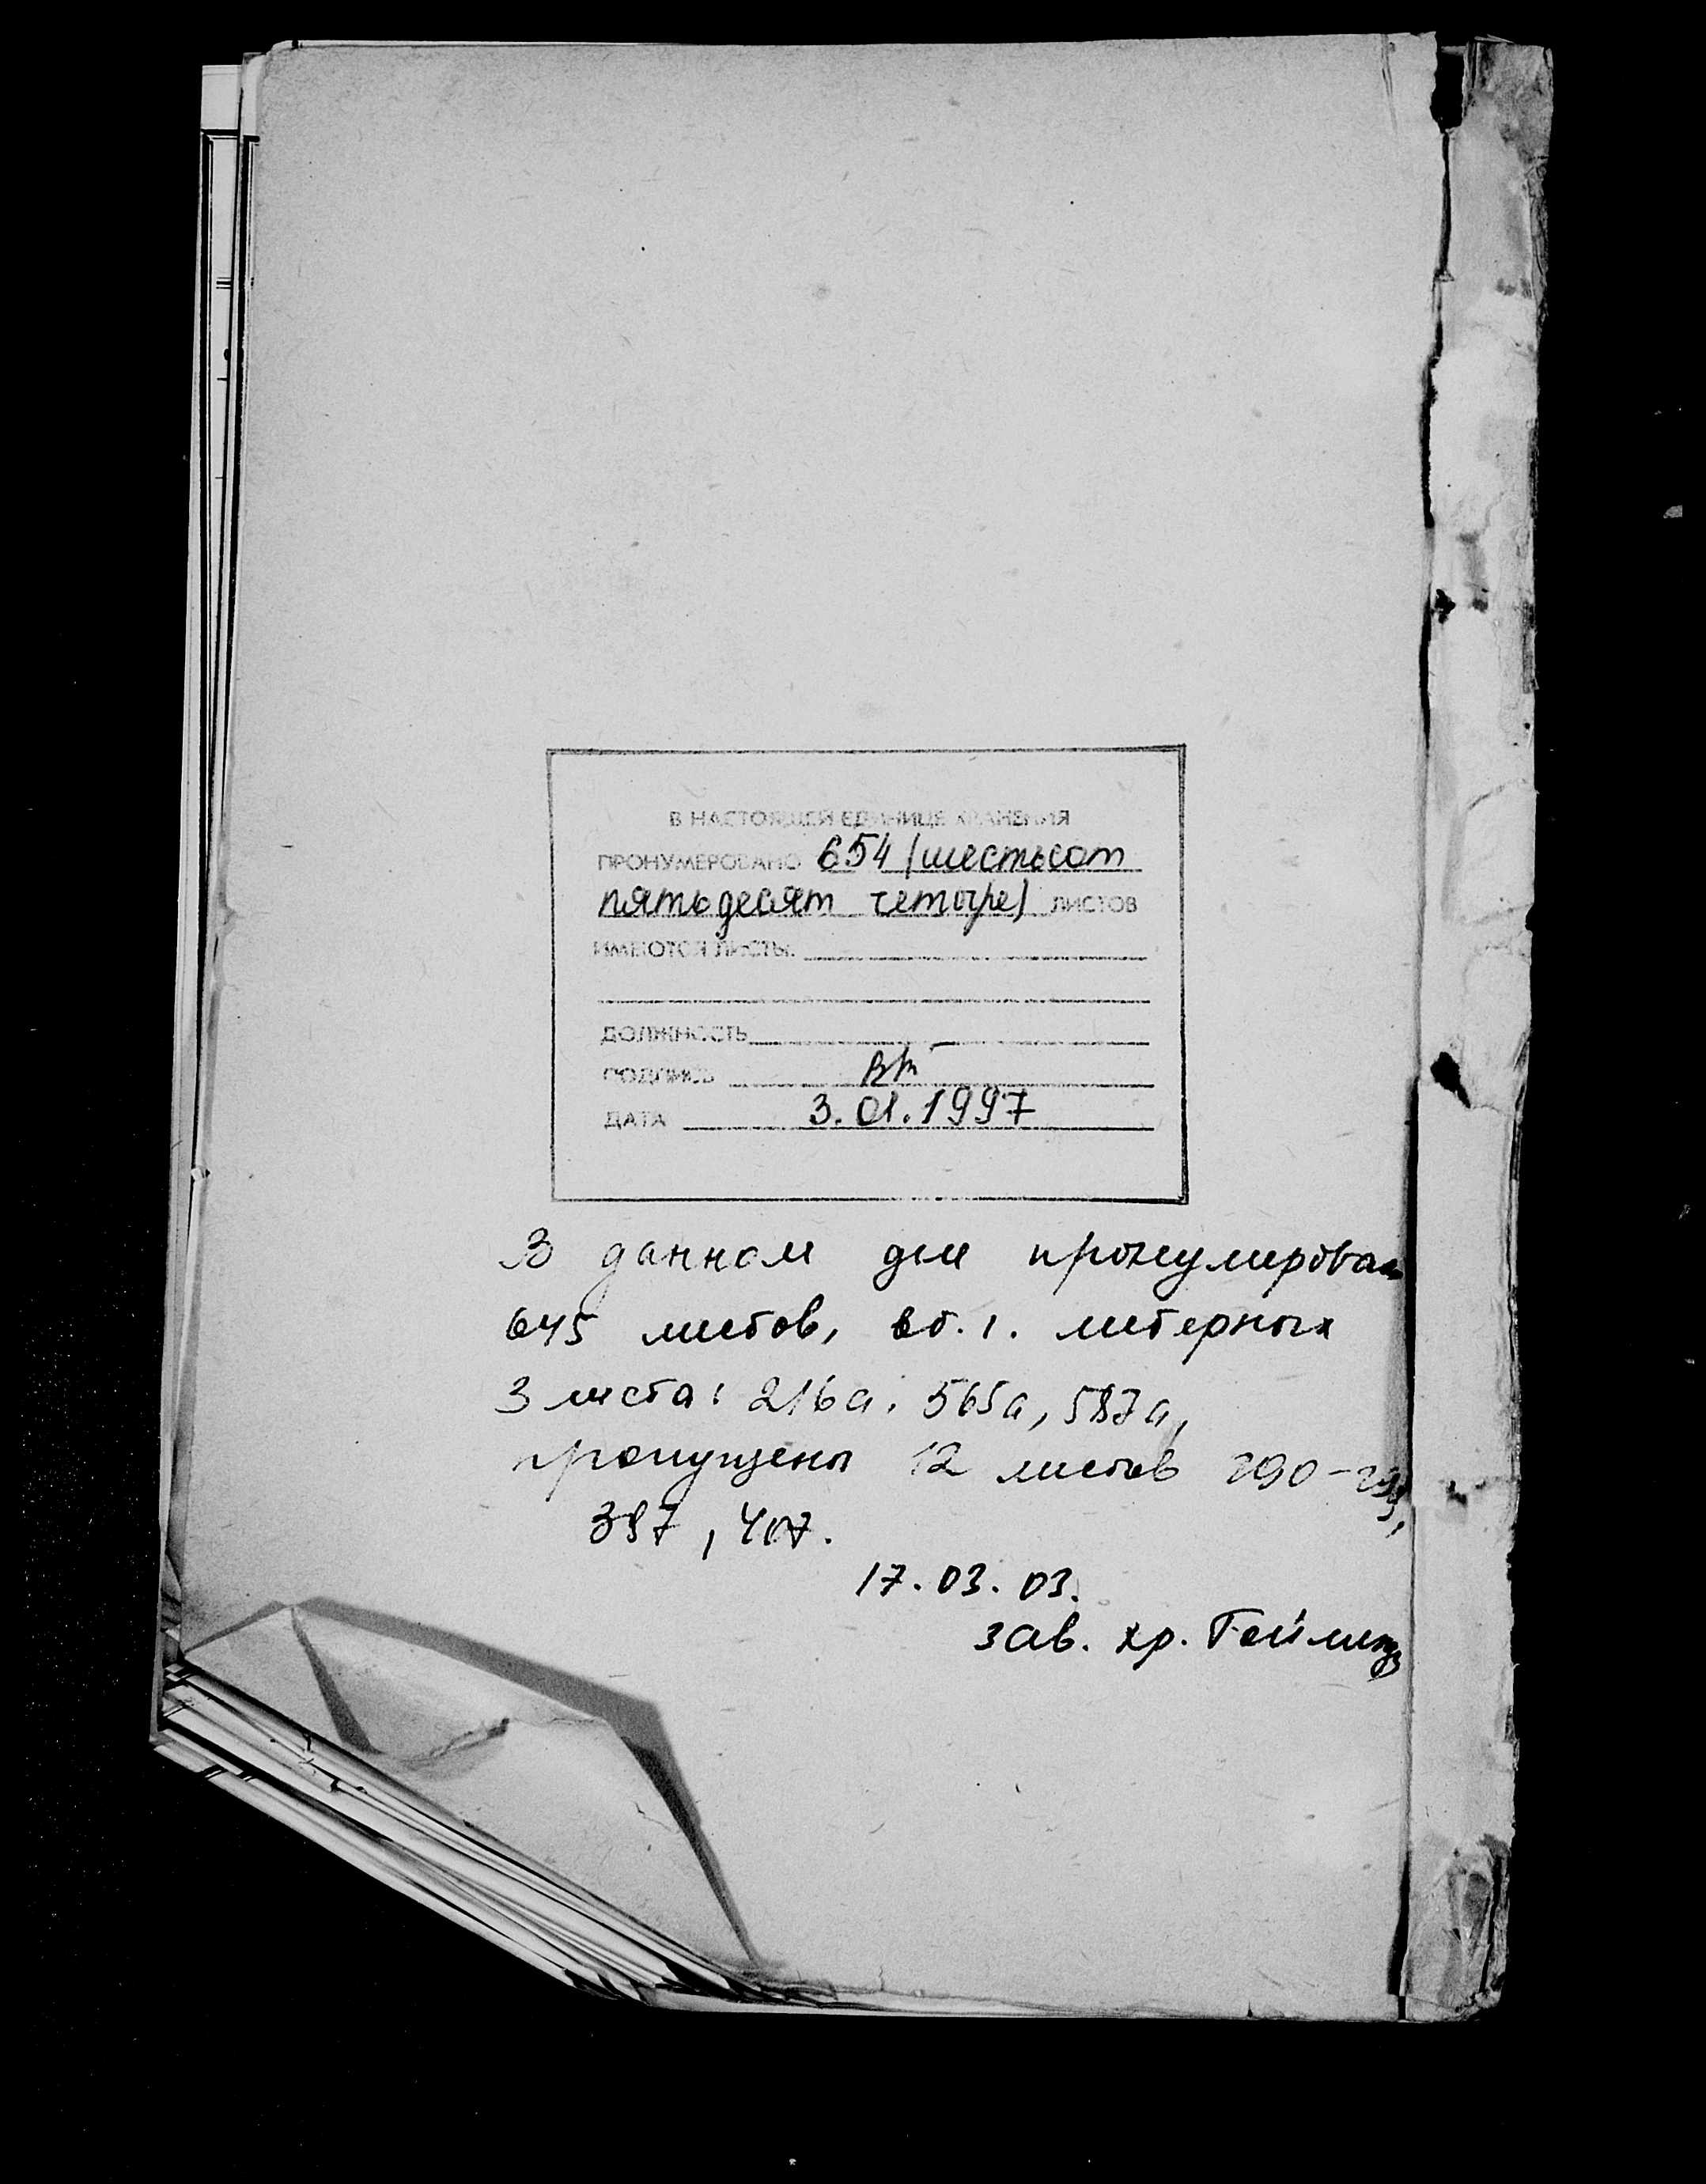 В НАСТОЯЩЕЙ ЕДИНИЦЕ ХРАНЕНИЯ
ПРОНУМЕРОВАНО 654 (шестьсот
пятьдесят четыре) ЛИСТОВ
ИМЕЮТСЯ ЛИСТЫ:
ДОЛЖНОСТЬ
ПОДПИСЬ
ДАТА 3.01.1997
В данном деле
645 листов, в т. ч. литерных
3 листа: 216а, 565а, 587а,
пропущены 12 листов 290-
397, 407.
17.03.03.
зав. хр.